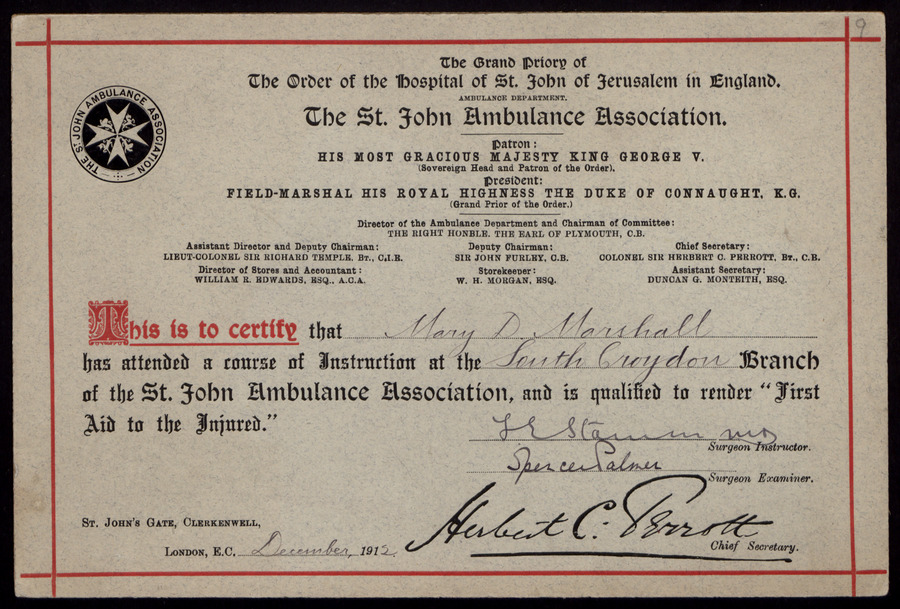 9
The Grand Priory of
The Order of the Hospital of St. John of Jerusalem in England.
AMBULANCE DEPARTMENT.
The St. John Ambulance Association.
THE ST JOHN AMBULANCE ASSOCIATION
Patron:
HIS MOST GRACIOUS MAJESTY KING GEORGE V.
(Sovereign Head and Patron of the Order).
President:
FIELD-MARSHAL HIS ROYAL HIGHNESS THE DUKE OF CONNAUGHT, K.G.
(Grand Prior of the Order.)
Director of the Ambulance Department and Chairman of Committee:
THE RIGHT HONBLE. THE EARL OF PLYMOUTH, C.B.
Assistant Director and Deputy Chairman: Deputy Chairman: Chief Secretary:
LIEUT-COLONEL SIR RICHARD TEMPLE, BT., C.I.E. SIR JOHN FURLEY, C.B. COLONEL SIR HERBERT C. PERROTT, BT., C.B.
Director of Stores and Accountant: Storekeeper: Assistant Secretary:
WILLIAM R. EDWARDS, ESQ., A.C.A. W. H. MORGAN, ESQ. DUNCAN G. MONTEITH, ESQ.
This is to certify that Mary D. Marshall
has attended a course of Instruction at the South Croydon Branch
of the St. John Ambulance Association, and is qualified to render "First
Aid to the Injured."
L E Stamm MD
Surgeon Instructor.
Spencer Palmer
Surgeon Examiner.
ST. JOHN'S GATE, CLERKENWELL,
Herbert C. Perrott
LONDON, E.C. December, 1912.
Chief Secretary.